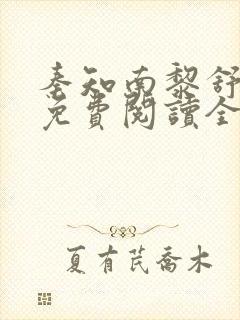 秦知南黎舒
免費閱讀全
夏有芪喬木